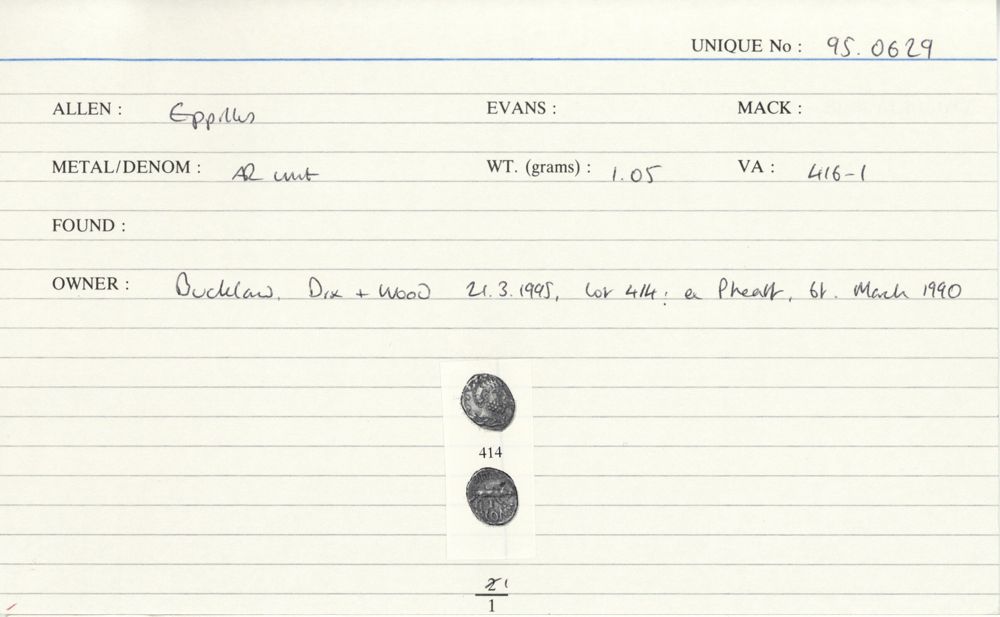 UNIQUE No : 95.0629
ALLEN : Eppillus EVANS : MACK :
METAL/DENOM : AR unit WT. (grams) : 1.05 VA : 416-1
FOUND :
OWNER : Buckland, Dix + Wood 21.3.1995, lot 414; ex Pheatt, bt. March 1990
414
21
1